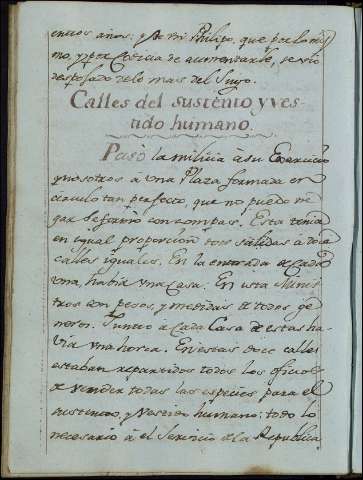 cientos años; y a Dn Philipo, que por lo mis
mo, y por codicia de aumentarle, se vio
despojado de lo mas del Suyo.
Calles del sustento y ves-
tido humano.
Pasò la milicia à su Exercicio
y nosotros à una Plaza formada en
circulo tan perfecto, que no puedo ne
gar se formò con compas. Esta tenia
en igual proporcion doce salidas a doce
calles iguales. En la entrada de Cada
una, havia una Casa. En esta Minis
tros con pesos, y medidas de todos ge
neros. Junto a Cada Casa de estas ha
via una horca. En estas doce calles
estaban repartidos todos los oficios
de vender todas las especies para el
sustento, y Vestido humano; todo lo
necesario à el Servicio de la Republica